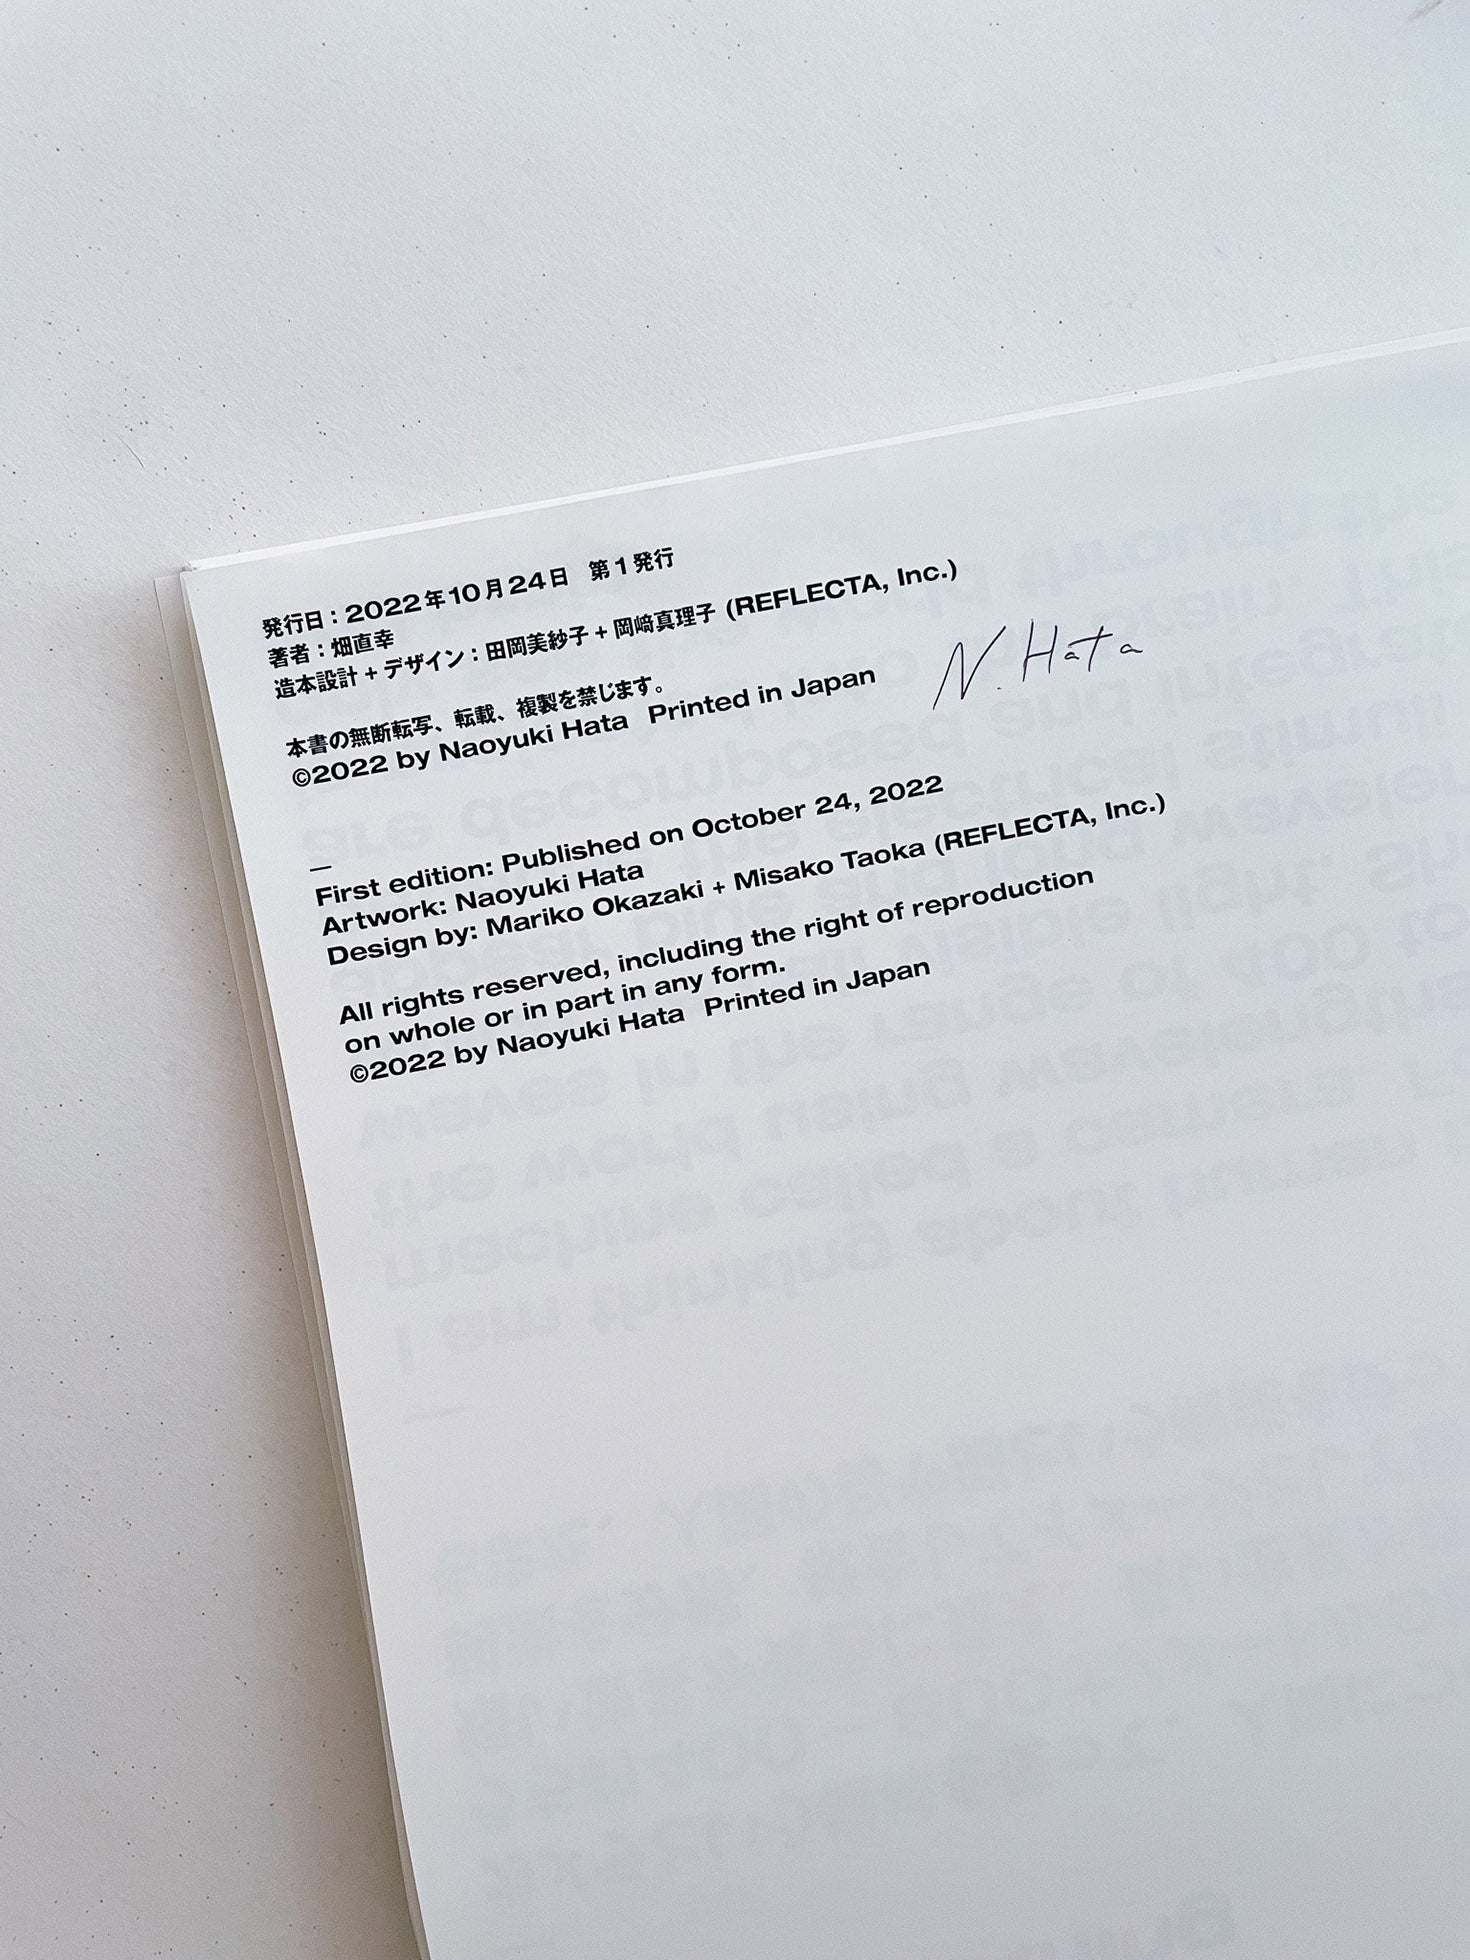 発行日：2022年10月24日　第1発行
著者：畑直幸
造本設計 + デザイン：田岡美紗子 + 岡﨑真理子 (REFLECTA, Inc.)
N. Hata
本書の無断転写、転載、複製を禁じます。
©2022 by Naoyuki Hata Printed in Japan
—
First edition: Published on October 24, 2022
Artwork: Naoyuki Hata
Design by: Mariko Okazaki + Misako Taoka (REFLECTA, Inc.)
All rights reserved, including the right of reproduction
on whole or in part in any form.
©2022 by Naoyuki Hata Printed in Japan